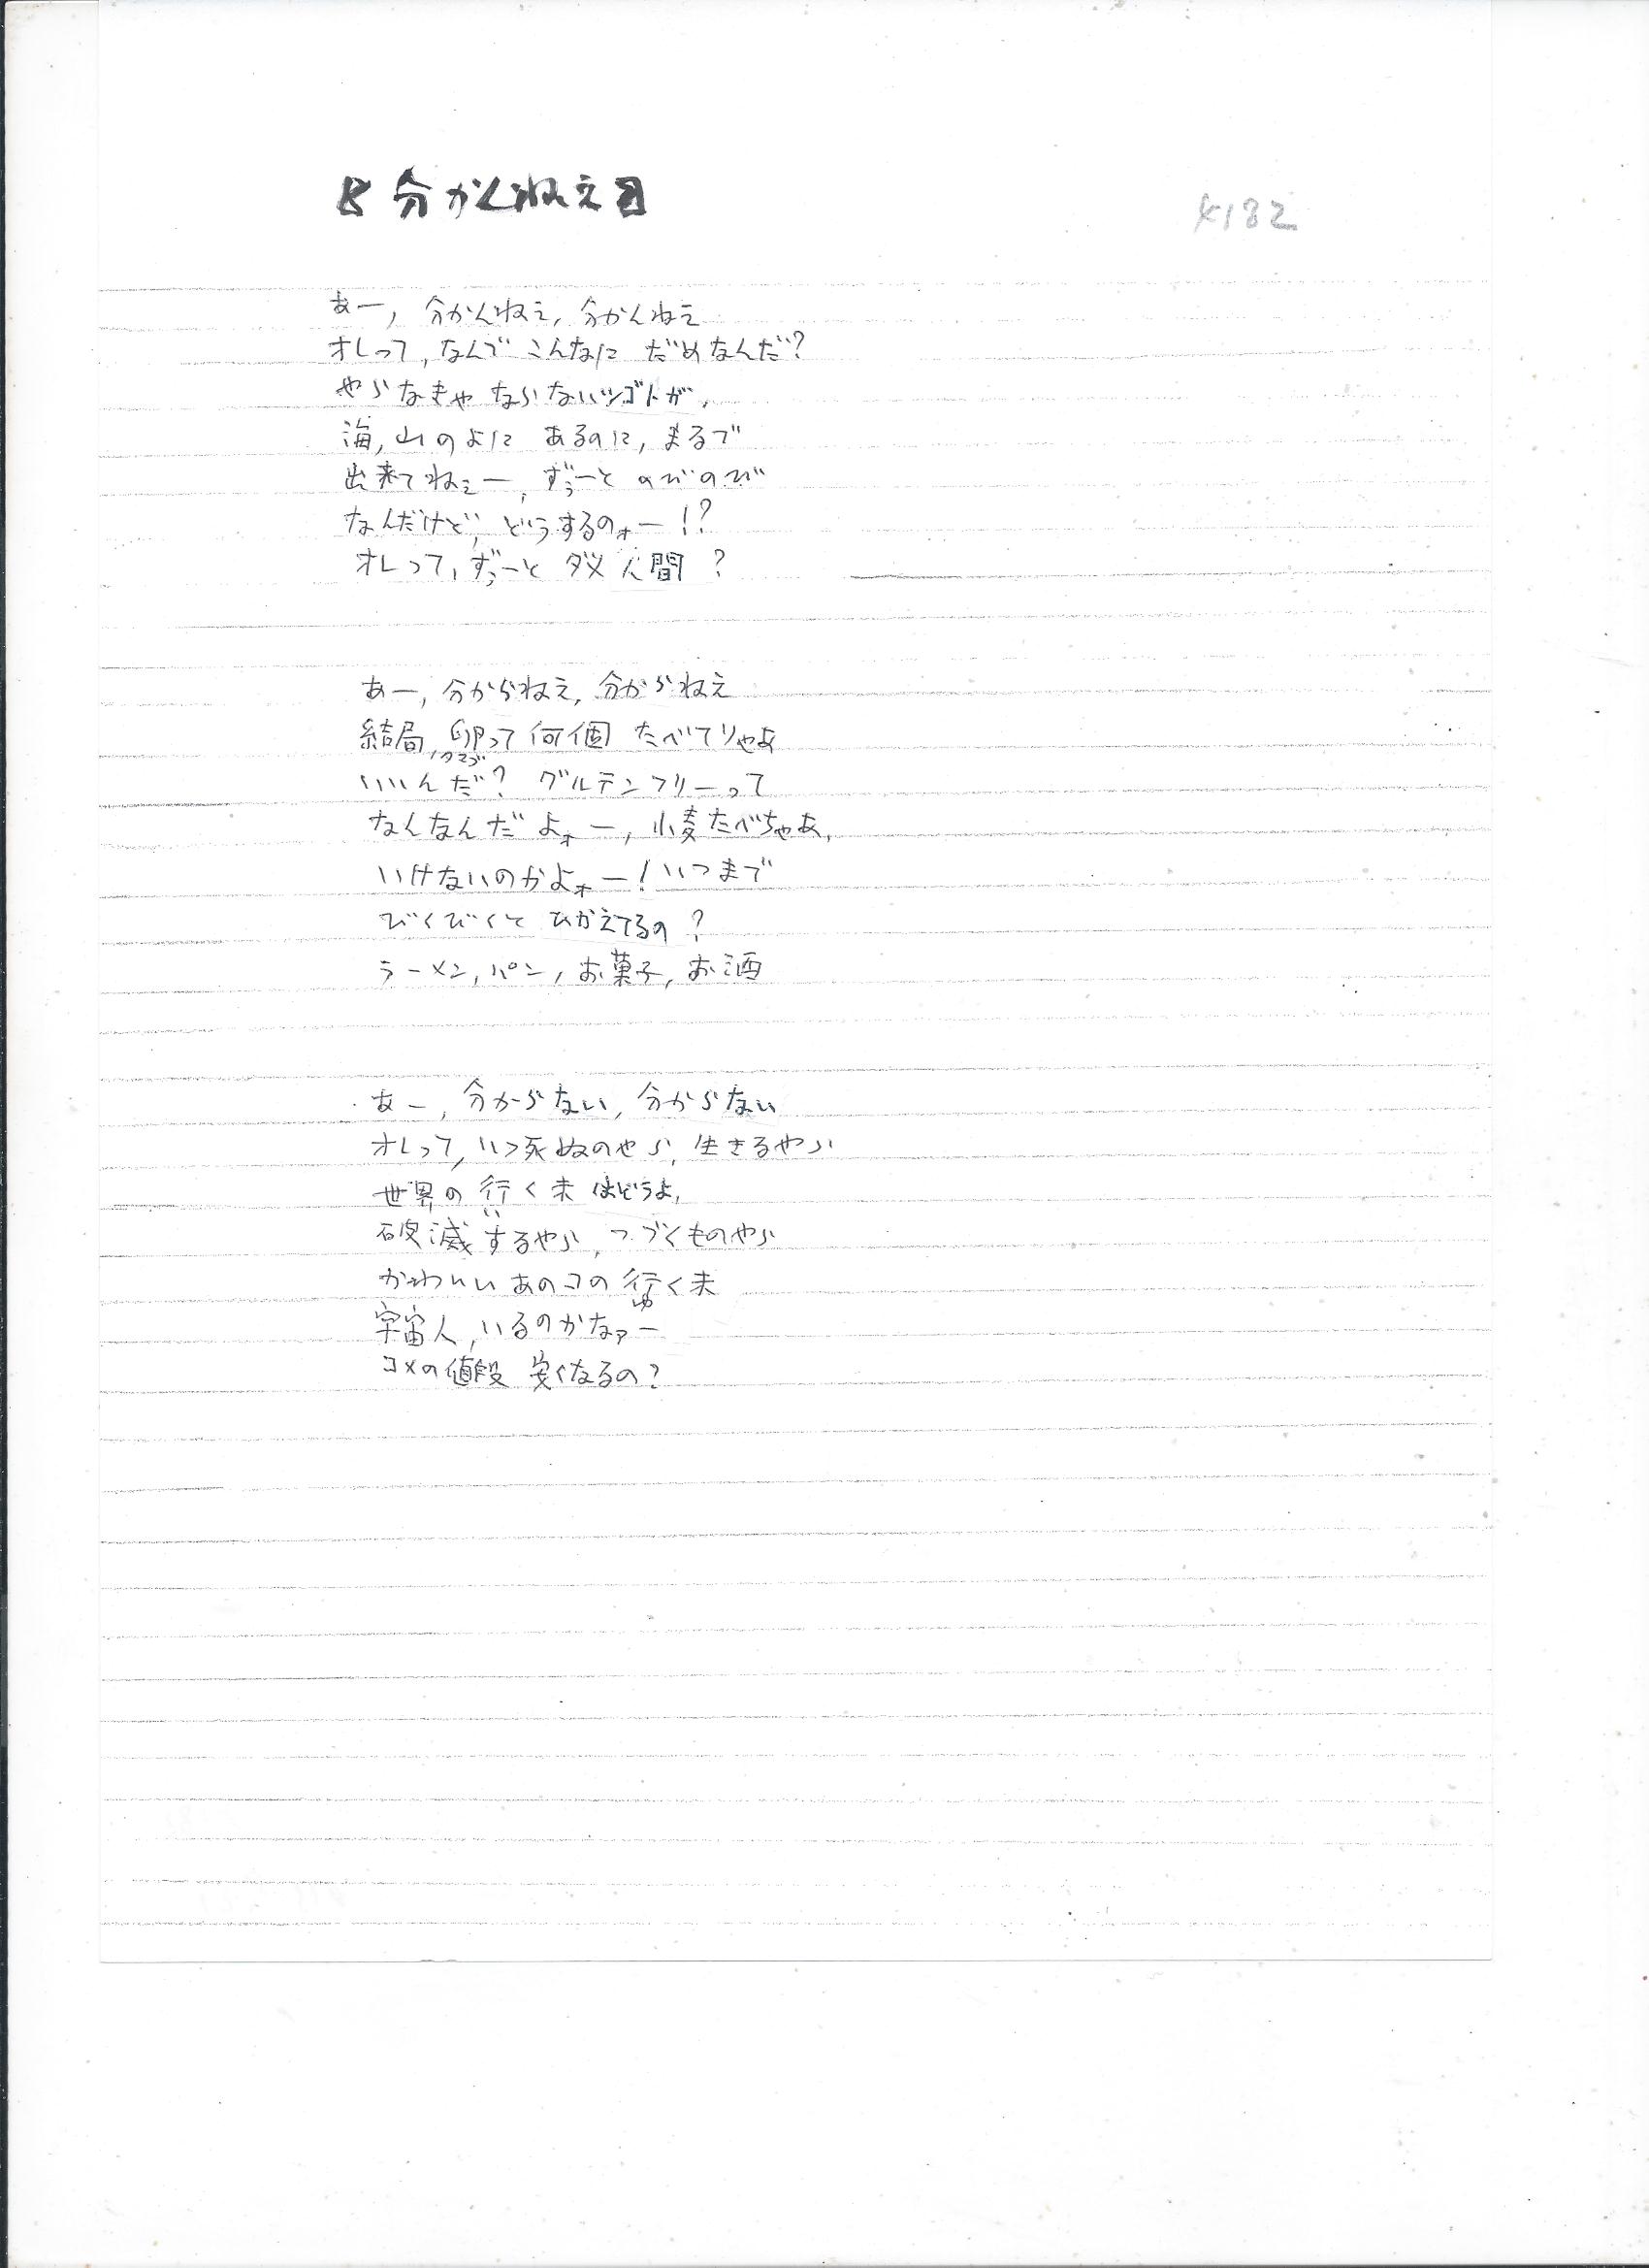 分かんねえ
4132
あー, 分かんねえ, 分かんねえ
オレって, なんで こんなに だめなんだ?
やらなきゃ ならないシゴトが,
海, 山のよに あるのに, まるで
出来てねぇー, ずぅーと のびのび
なんだけど, どうするのォー!?
オレって, ずぅーと ダメ人間?
あー, 分からねえ, 分からねえ
結局, 卵って 何個 たべてりゃあ
タマゴ
いいんだ? グルテンフリーって
なんなんだ よォー, 小麦たべちゃあ,
いけないのかよォー! いつまで
びくびくと ひかえてるの?
ラーメン, パン, お菓子, お酒
あー, 分からない, 分からない
オレって, いつ死ぬのやら, 生きるやら
世界の 行く末 はどうよ,
い
破滅するやら, つづくものやら
かわいい あのコの 行く末
ゆ
宇宙人, いるのかなァー
コメの値段 安くなるの?